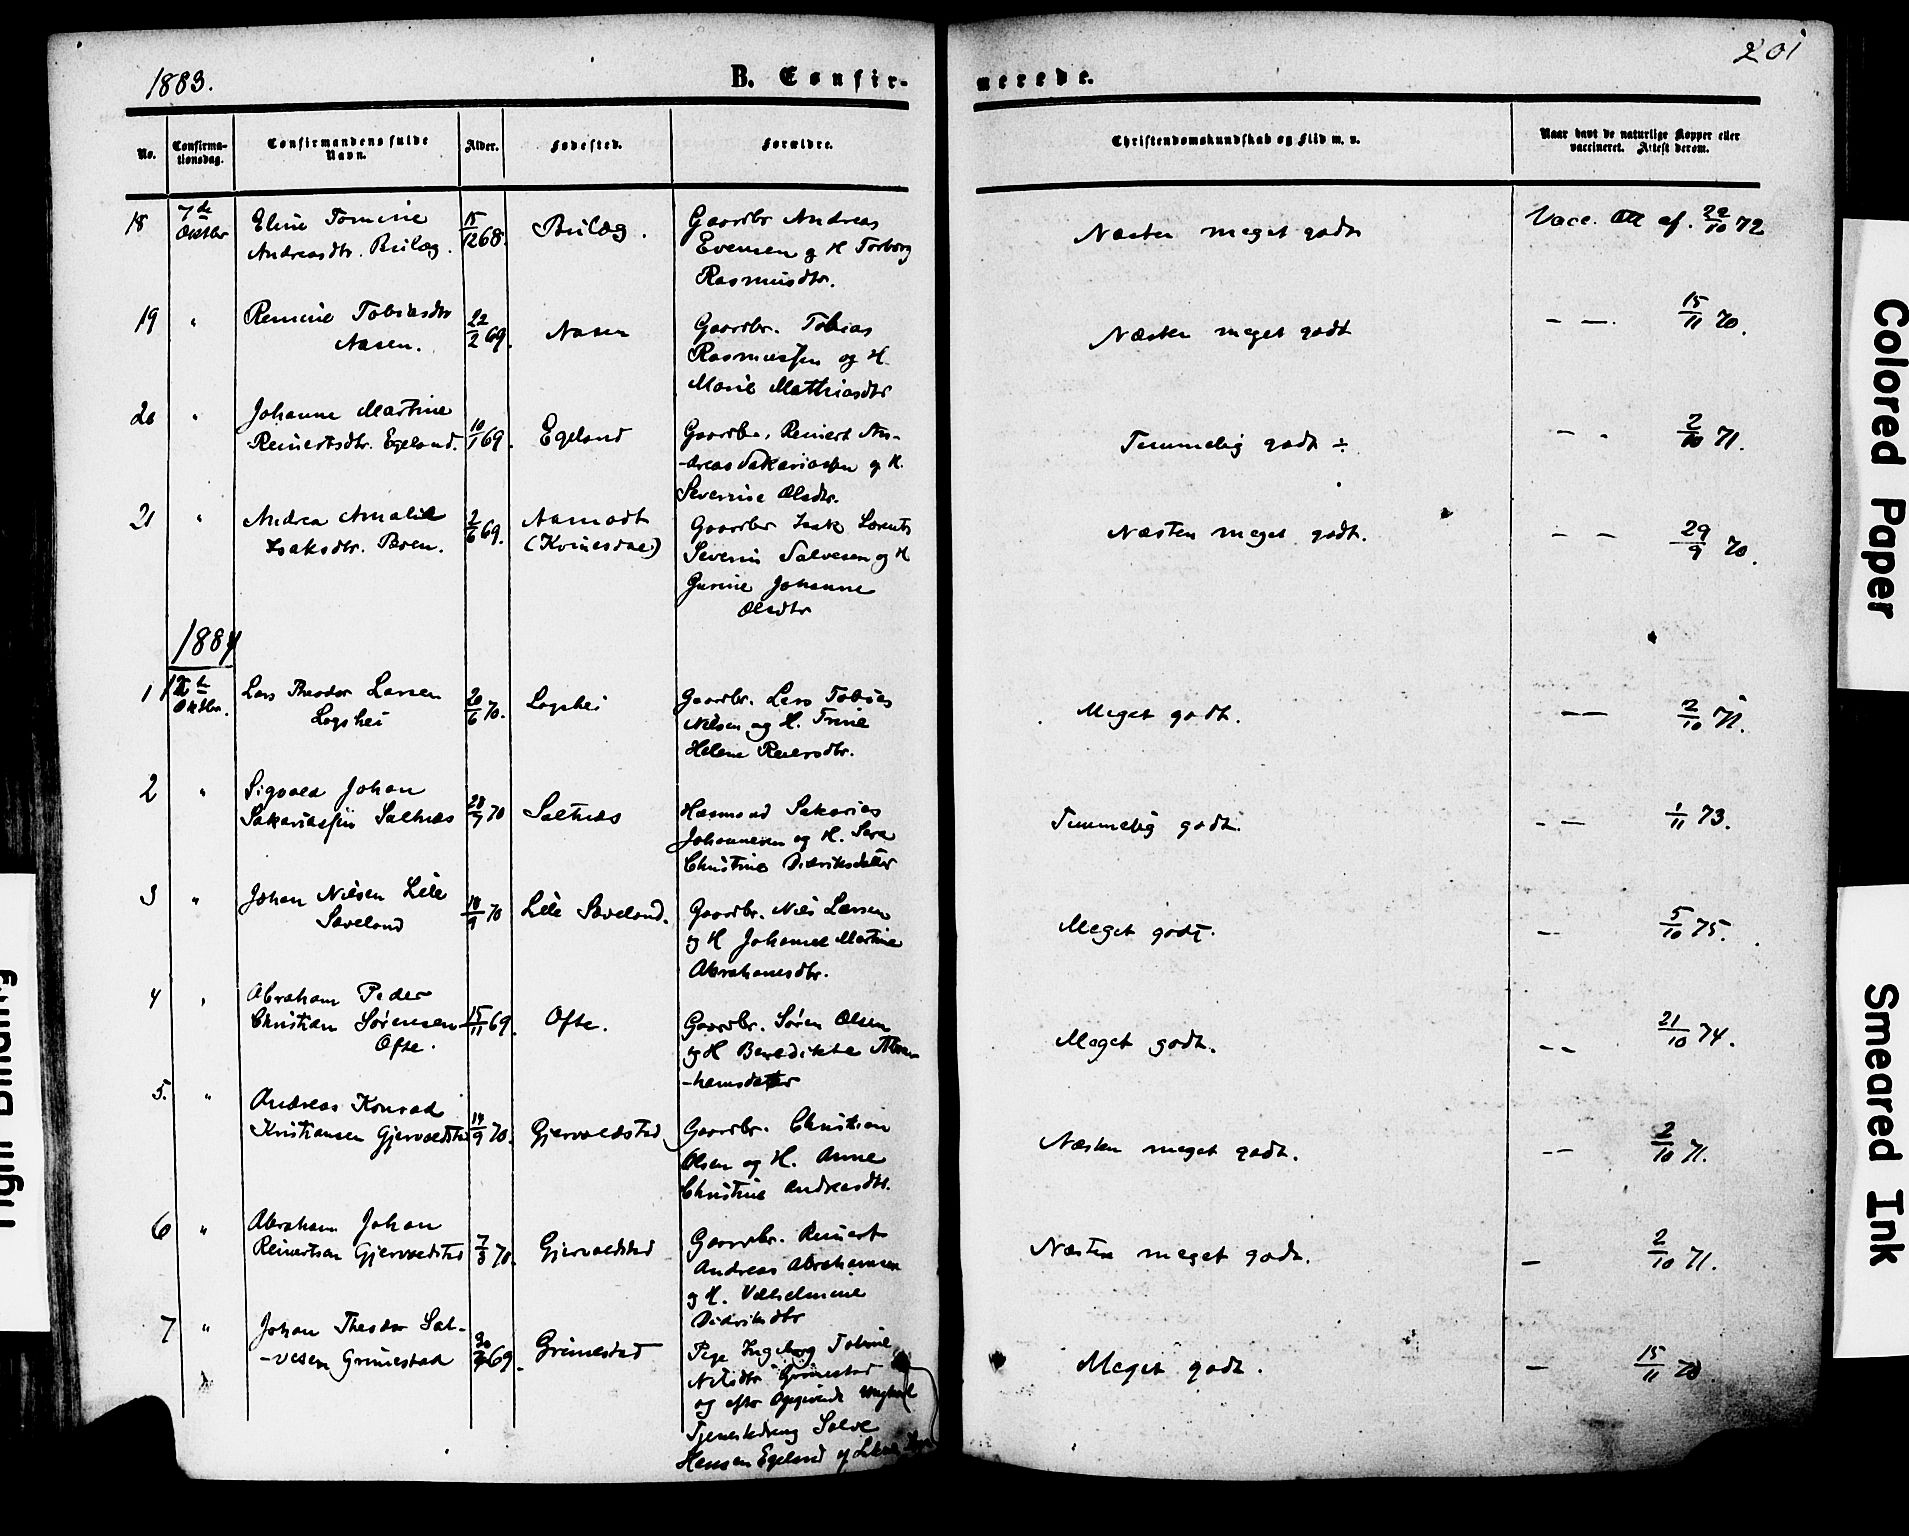 1883.
B. Confir-
merede.
201
No.
Confirma-
tionsdag.
Confirmandens fulde
Navn.
Alder.
Fødested.
Forældre.
Christendomskundskab og Flid m. v.
Naar havt de naturlige Kopper eller
vaccineret. Attest derom.
18 7de Oktbr
Eline Tomine
Andreasdtr.
15/12 68.
Gaardbr Andreas
Evensen og H Torborg
Rasmusdtr.
Næsten meget godt
Vacc. Att af. 22/10 72
19 "
Remine Tobiasdtr
Aasen.
22/2 69.
Aasen
Gaardbr. Tobias
Rasmussen og H.
Marie Mathiasdtr
Næsten meget godt
— — 15/11 70.
20 "
Johanne Martine
Reinertsdtr. Egeland.
10/1 69.
Egeland
Gaardbr. Reinert An-
-dreas Sakariassen og H.
Severine Olsdtr.
Temmelig godt ÷
— 2/10 71.
21 "
Andrea Amalie
Isaksdtr.
2/6 69.
Aamodt
(Kvinesdal)
Gaardbr Isak Lorents
Severin Salvesen og H
Gurine Johanne
Olsdtr
Næsten meget godt.
— — 29/9 70.
1884
1 12te Oktbr.
Lars Theodor Larsen
Logshei
20/6 70.
Logshei
Gaardbr. Lars Tobias
Nilsen og H. Trine
Helene Reiersdtr.
Meget godt.
— — 2/10 71.
2 "
Sigvald Johan
Sakariassen Saltnæs
28/7 70
Saltnæs
Husmand Sakarias
Johannesen og H. Sara
Christine Didriksdatter
Temmelig godt.
— — 1/11 73.
3 "
Johan Nilsen Lille
Sæveland
18/9 70
Lille Sæveland.
Gaardbr. Nils Larsen
og H Johanne Martine
Abrahamsdtr.
Meget godt.
— 5/10 75.
4 "
Abraham Peder
Christian Sørensen
Ofte.
15/11 69.
Ofte.
Gaardbr. Søren Olsen
og H Benedikte Abra-
-hamsdatter
Meget godt.
— — 21/10 74.
5. "
Andreas Konrad
Kristiansen Gjervoldstad
14/9 70.
Gjervoldstad
Gaardbr. Christian
Olsen og H. Anne
Christine Andreasdtr.
Næsten meget godt.
— — 2/10 71.
6 "
Abraham Johan
Reinertsen Gjervoldstad
7/3 70.
Gjervoldstad
Gaardbr. Reinert
Andreas Abrahamsen
og H. Vilhelmine
Didriksdtr
Næsten meget godt.
— 2/10 71.
7 "
Johan Theodor Sal-
-vesen Grimestad
69.
Grimestad
Pige Ingeborg Tobine
Nilsdtr Grimestad
og efter Opgivende Ungkarl
Tjenestedreng Salve
Hansen Egeland
Meget godt.
— 15/11 70
Colored Paper
Smeared Ink
Tight Binding